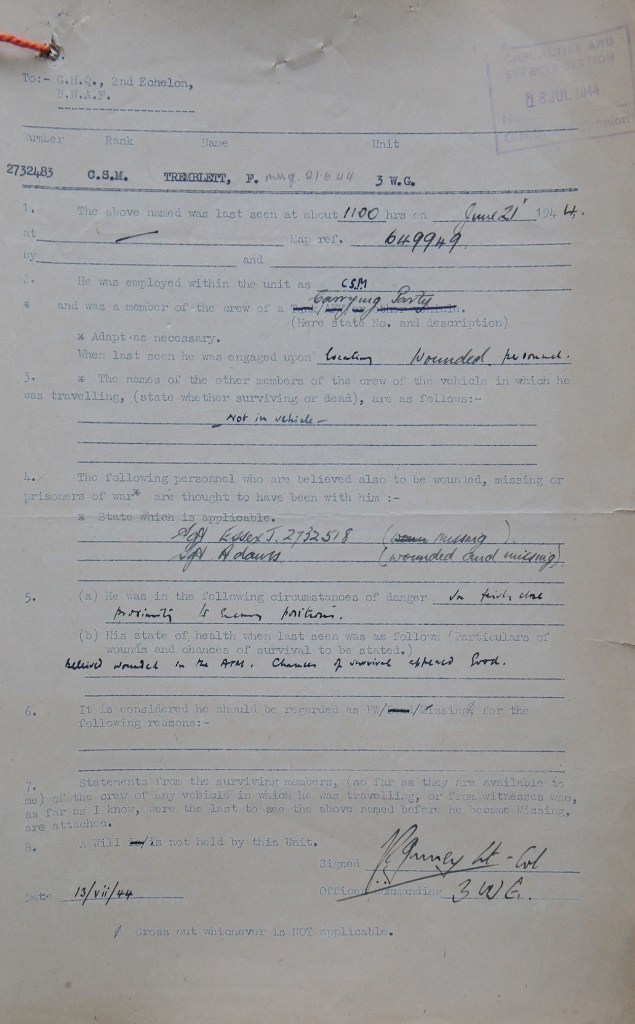 CASUALTIES AND
EFFECTS SECTION
18 JUL 1944
To:- G.H.Q., 2nd Echelon,
B.N.A.F.
Number Rank Name Unit
2732483 C.S.M. TREMBLETT, F. missg. 21.6.44 3 W.G.
1. The above named was last seen at about 1100 hrs on June 21 1944.
at — Map ref. 649949
by and
2. He was employed within the unit as CSM
* and was a member of the crew of a Carrying Party.
(Here state No. and description)
* Adapt as necessary.
When last seen he was engaged upon locating wounded personnel.
3. * The names of the other members of the crew of the vehicle in which he
was travelling, (state whether surviving or dead), are as follows:-
Not in vehicle -
4. The following personnel who are believed also to be wounded, missing or
prisoners of war* are thought to have been with him :-
* State which is applicable.
Sgt Essex J. 2732518 (missing).
Sgt Adams (wounded and missing)
5. (a) He was in the following circumstances of danger In fairly close
proximity to enemy positions.
(b) His state of health when last seen was as follows (Particulars of
wounds and chances of survival to be stated.)
Believed wounded in the arm. Chances of survival appeared good.
6. It is considered he should be regarded as PW/ /Missing, for the
following reasons:-
7. Statements from the surviving members, (so far as they are available to
me) of the crew of any vehicle in which he was travelling, or from witnesses who,
as far as I know, were the last to see the above named before he became Missing,
are attached.
8. A Will is/is not held by this Unit.
Signed Lt-Col
Date 13/vii/44 Officer Commanding 3 W.G.
/ Cross out whichever is NOT applicable.